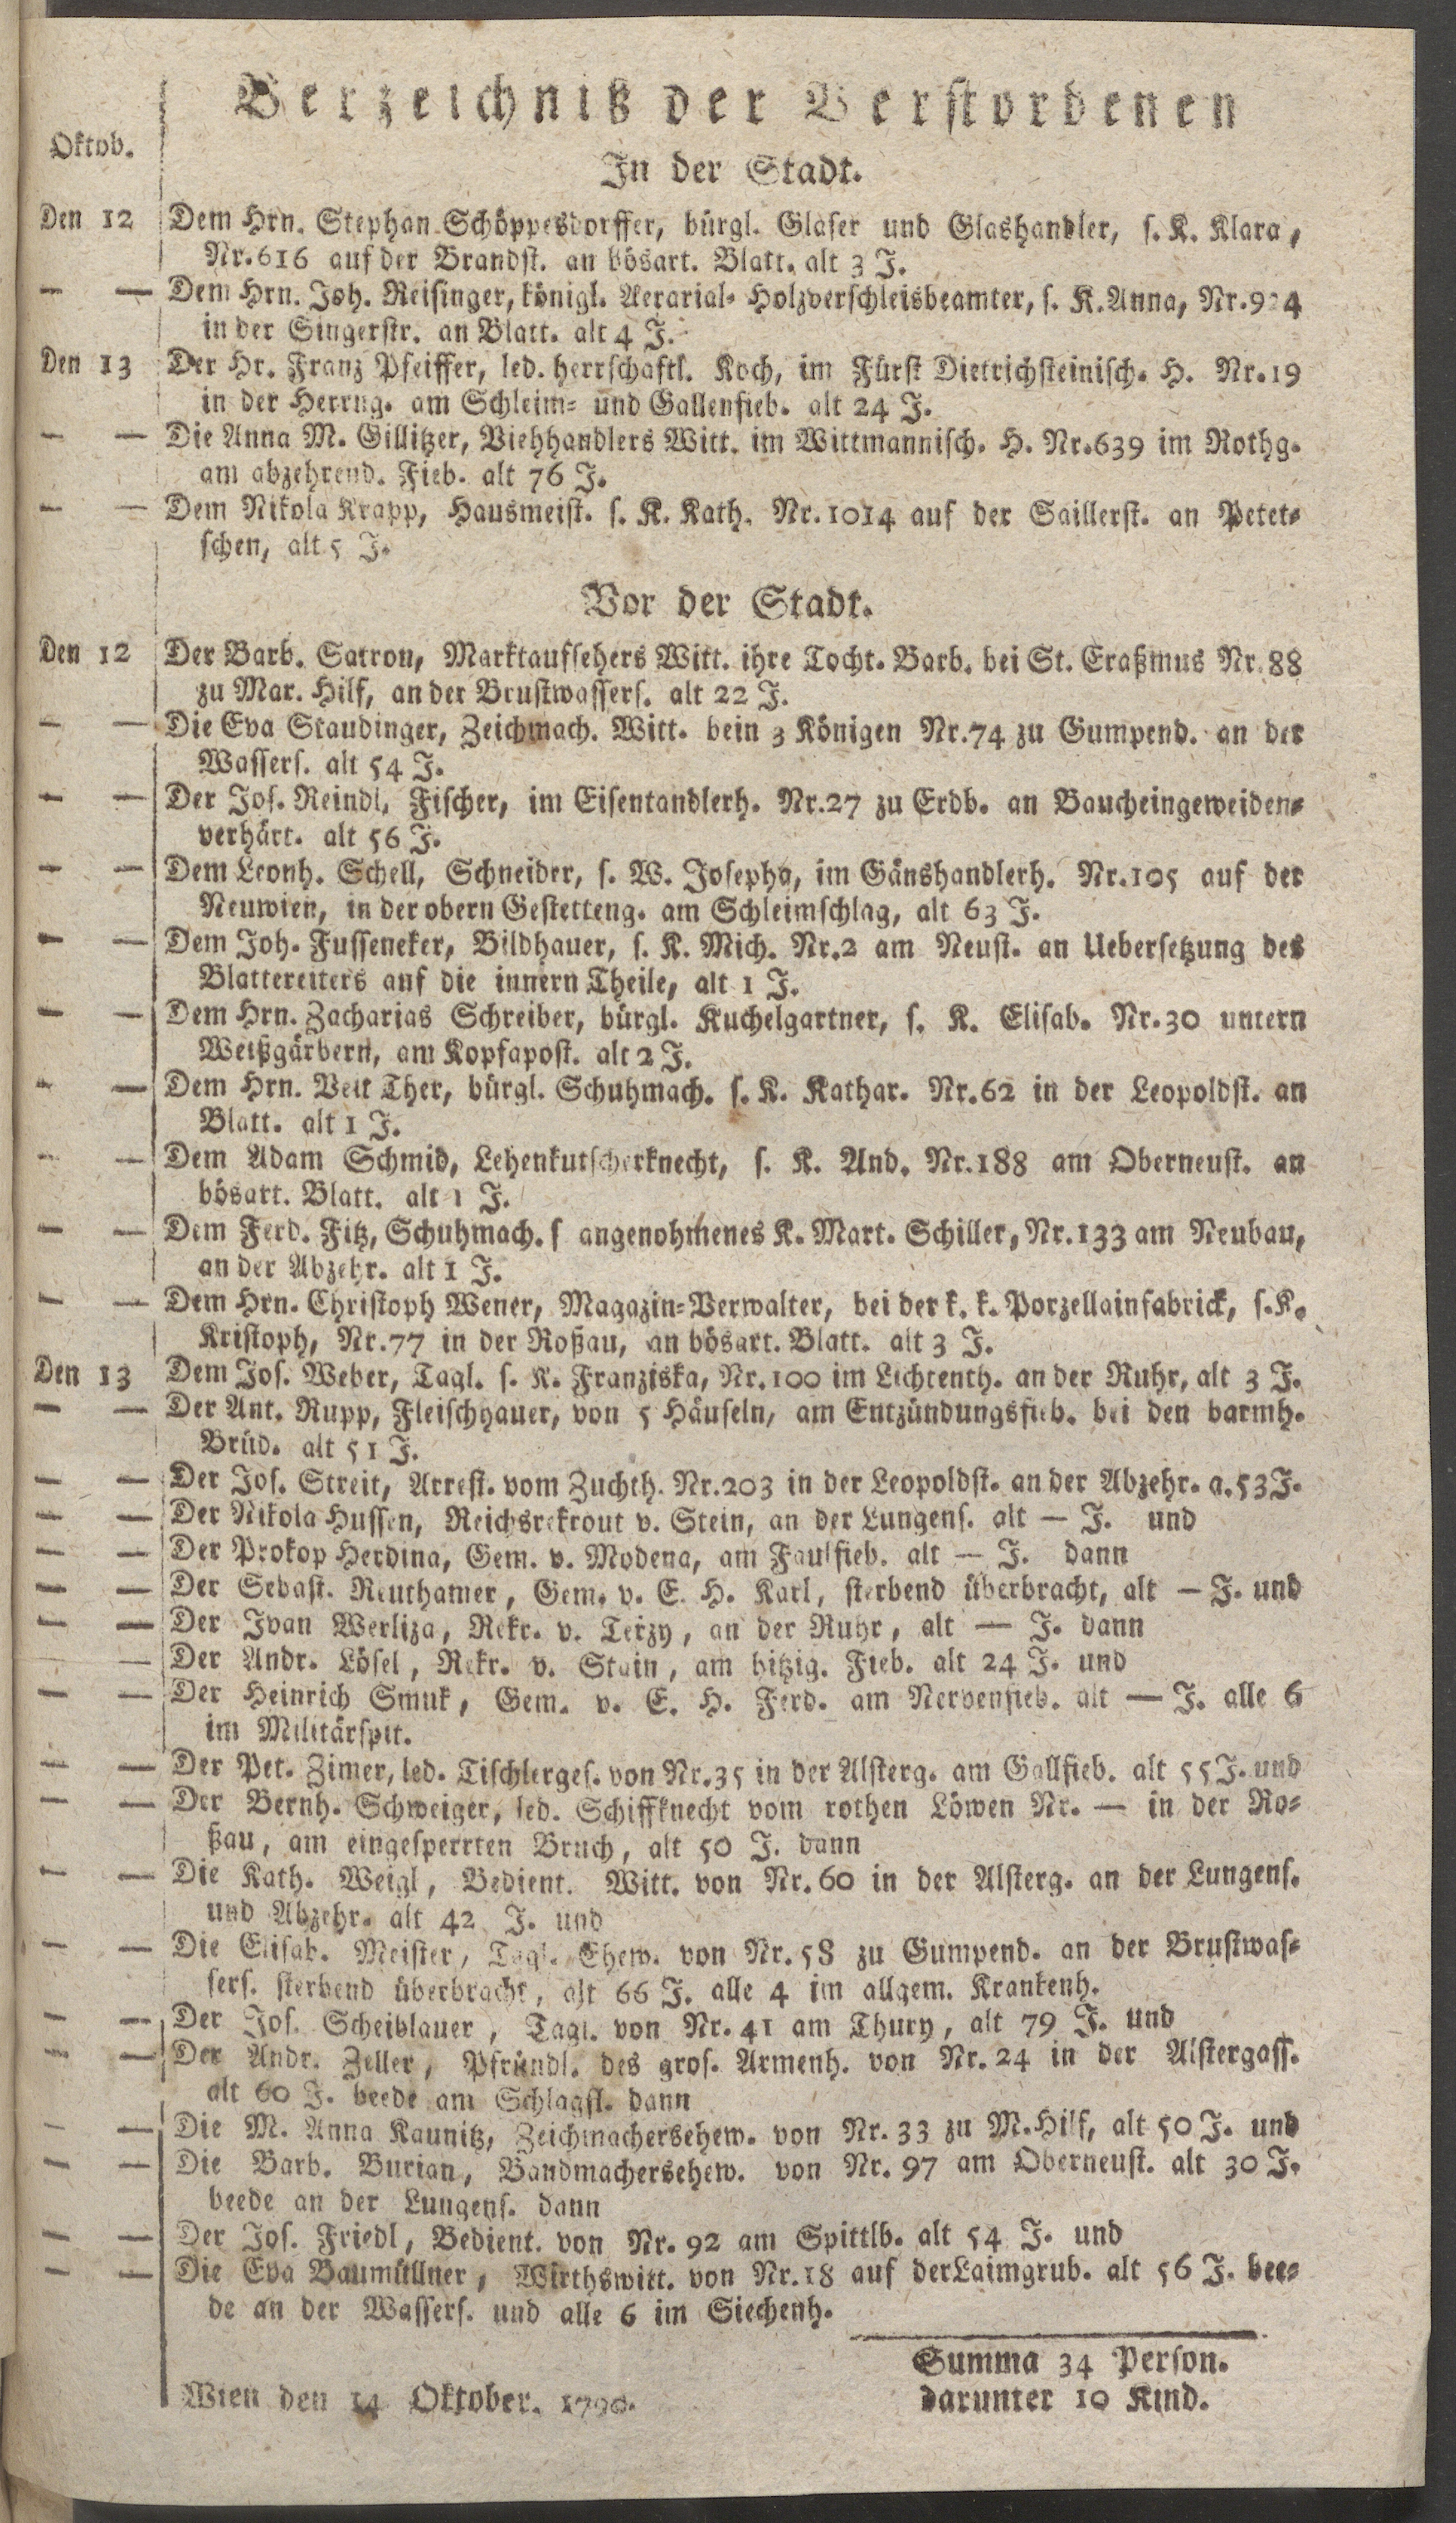 Verzeichniß der Verstorbenen
Oktob.
In der Stadt.
Den 12 Dem Hrn. Stephan Schöppesdorffer, bürgl. Glaser und Glashandler, s. K. Klara,
Nr. 616 auf der Brandst. an bösart. Blatt. alt 3 J.
— — Dem Hrn. Joh. Reisinger, königl. Aerarial- Holzverschleisbeamter, s. K. Anna,
in der Singerstr. an Blatt. alt 4 J.
Den 13 Der Hr. Franz Pfeiffer, led. herrschaftl. Koch, im Fürst Dietrichsteinisch. H. Nr. 19
in der Herrng. am Schleim- und Gallenfieb. alt 24 J.
— — Die Anna M. Gillitzer, Viehhandlers Witt. im Wittmannisch. H. Nr. 639 im Rothg.
am abzehrend. Fieb. alt 76 J.
— — Dem Nikola Krapp, Hausmeist. s. K. Kath. Nr. 1014 auf der Saillerst. an Petet-
schen, alt 5 J.
Vor der Stadt.
Den 12 Der Barb. Satron, Marktaufsehers Witt. ihre Tocht. Barb. bei St. Eraßmus Nr. 88
zu Mar. Hilf, an der Brustwassers. alt 22 J.
— — Die Eva Staudinger, Zeichmach. Witt. bein 3 Königen Nr. 74 zu Gumpend. an der
Wassers. alt 54 J.
— — Der Jos. Reindl, Fischer, im Eisentandlerh. Nr. 27 zu Erdb. an Baucheingeweiden-
verhärt. alt 56 J.
— — Dem Leonh. Schell, Schneider, s. W. Josepha, im Gänshandlerh. Nr. 105 auf der
Neuwien, in der obern Gestetteng. am Schleimschlag, alt 63 J.
— — Dem Joh. Fusseneker, Bildhauer, s. K. Mich. Nr. 2 am Neust. an Uebersetzung des
Blattereiters auf die innern Theile, alt 1 J.
— — Dem Hrn. Zacharias Schreiber, bürgl. Kuchelgartner, s. K. Elisab. Nr. 30 untern
Weißgärbern, am Kopfapost. alt 2 J.
— — Dem Hrn. Veit Ther, bürgl. Schuhmach. s. K. Kathar. Nr. 62 in der Leopoldst. an
Blatt. alt 1 J.
— — Dem Adam Schmid, Lehenkutscherknecht, s. K. And. Nr. 188 am Oberneust. an
bösart. Blatt. alt 1 J.
— — Dem Ferd. Fitz, Schuhmach. s angenohmenes K. Mart. Schiller, Nr. 133 am Neubau,
an der Abzehr. alt 1 J.
— — Dem Hrn. Christoph Wener, Magazin-Verwalter, bei der k. k. Porzellainfabrick, s. K.
Kristoph, Nr. 77 in der Roßau, an bösart. Blatt. alt 3 J.
Den 13 Dem Jos. Weber, Tagl. s. K. Franziska, Nr. 100 im Lichtenth. an der Ruhr, alt 3 J.
— — Der Ant. Rupp, Fleischhauer, von 5 Häuseln, am Entzündungsfieb. bei den barmh.
Brüd. alt 51 J.
— — Der Jos. Streit, Arrest. vom Zuchth. Nr. 203 in der Leopoldst. an der Abzehr. a. 53 J.
— — Der Nikola Hussen, Reichsrekrout v. Stein, an der Lungens. alt — J. und
— — Der Prokop Herdina, Gem. v. Modena, am Faulfieb. alt — J. dann
— — Der Sebast. Reuthamer, Gem. v. E. H. Karl, sterbend überbracht, alt — J. und
— — Der Ivan Werliza, Rekr. v. Terzy, an der Ruhr, alt — J. dann
— Der Andr. Lösel, Rekr. v. Stain, am hitzig. Fieb. alt 24 J. und
— — Der Heinrich Smuk, Gem. v. E. H. Ferd. am Nervenfieb. alt — J. alle 6
im Militärspit.
— — Der Pet. Zimer, led. Tischlerges. von Nr. 35 in der Alsterg. am Gallfieb. alt 55 J. und
— — Der Bernh. Schweiger, led. Schiffknecht vom rothen Löwen Nr. — in der Ro-
ßau, am eingesperrten Bruch, alt 50 J. dann
— — Die Kath. Weigl, Bedient. Witt. von Nr. 60 in der Alsterg. an der Lungens.
und Abzehr. alt 42 J. und
— — Die Elisab. Meister, Tagl. Ehew. von Nr. 58 zu Gumpend. an der Brustwas-
sers. sterbend überbracht, alt 66 J. alle 4 im allgem. Krankenh.
— — Der Jos. Scheiblauer, Tagl. von Nr. 41 am Thury, alt 79 J. und
— — Der Andr. Zeller, Pfründl. des gros. Armenh. von Nr. 24 in der Alstergass.
alt 60 J. beede am Schlagfl. dann
— — Die M. Anna Kaunitz, Zeichmachersehew. von Nr. 33 zu M. Hilf, alt 50 J. und
— — Die Barb. Burian, Bandmachersehew. von Nr. 97 am Oberneust. alt 30 J.
beede an der Lungens. dann
— — Der Jos. Friedl, Bedient. von Nr. 92 am Spittlb. alt 54 J. und
— — Die Eva Baumüllner, Wirthswitt. von Nr. 18 auf der Laimgrub. alt 56 J. bee-
de an der Wassers. und alle 6 im Siechenh.
Summa 34 Person.
darunter 10 Kind.
Wien den 14 Oktober. 1790.